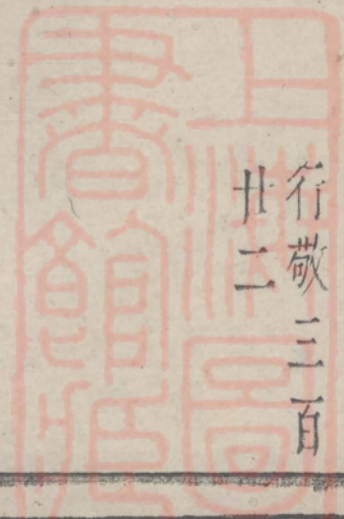 行敬三百
廿二
上海圖
書館藏